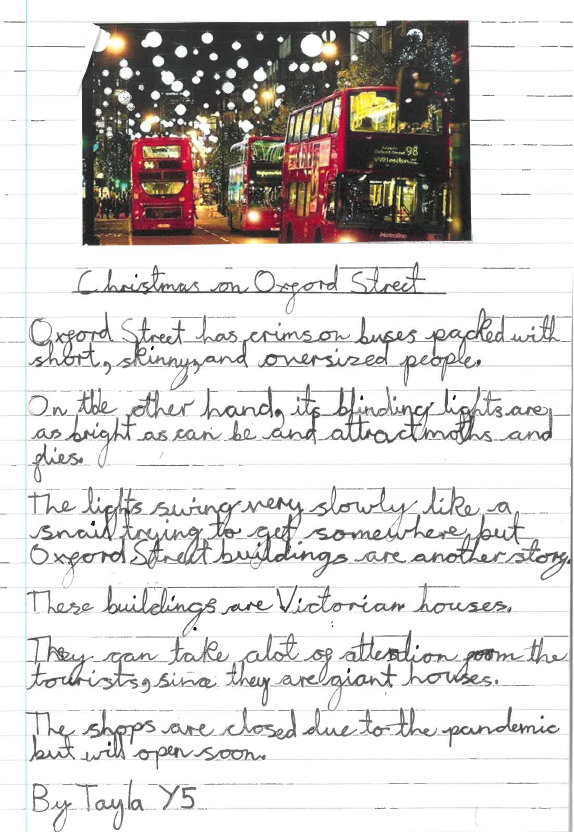 94
98
Willesden
Metroline
Christmas on Oxford Street
Oxford Street has crimson buses packed with
short, skinny, and oversized people.
On the other hand, its blinding lights are
as bright as can be and attract moths and
flies.
The lights swing very slowly like a
snail trying to get somewhere, but
Oxford Street buildings are another story.
These buildings are Victorian houses.
They can take alot of attention from the
tourists, since they are giant houses.
The shops are closed due to the pandemic
but will open soon.
By Tayla Y5